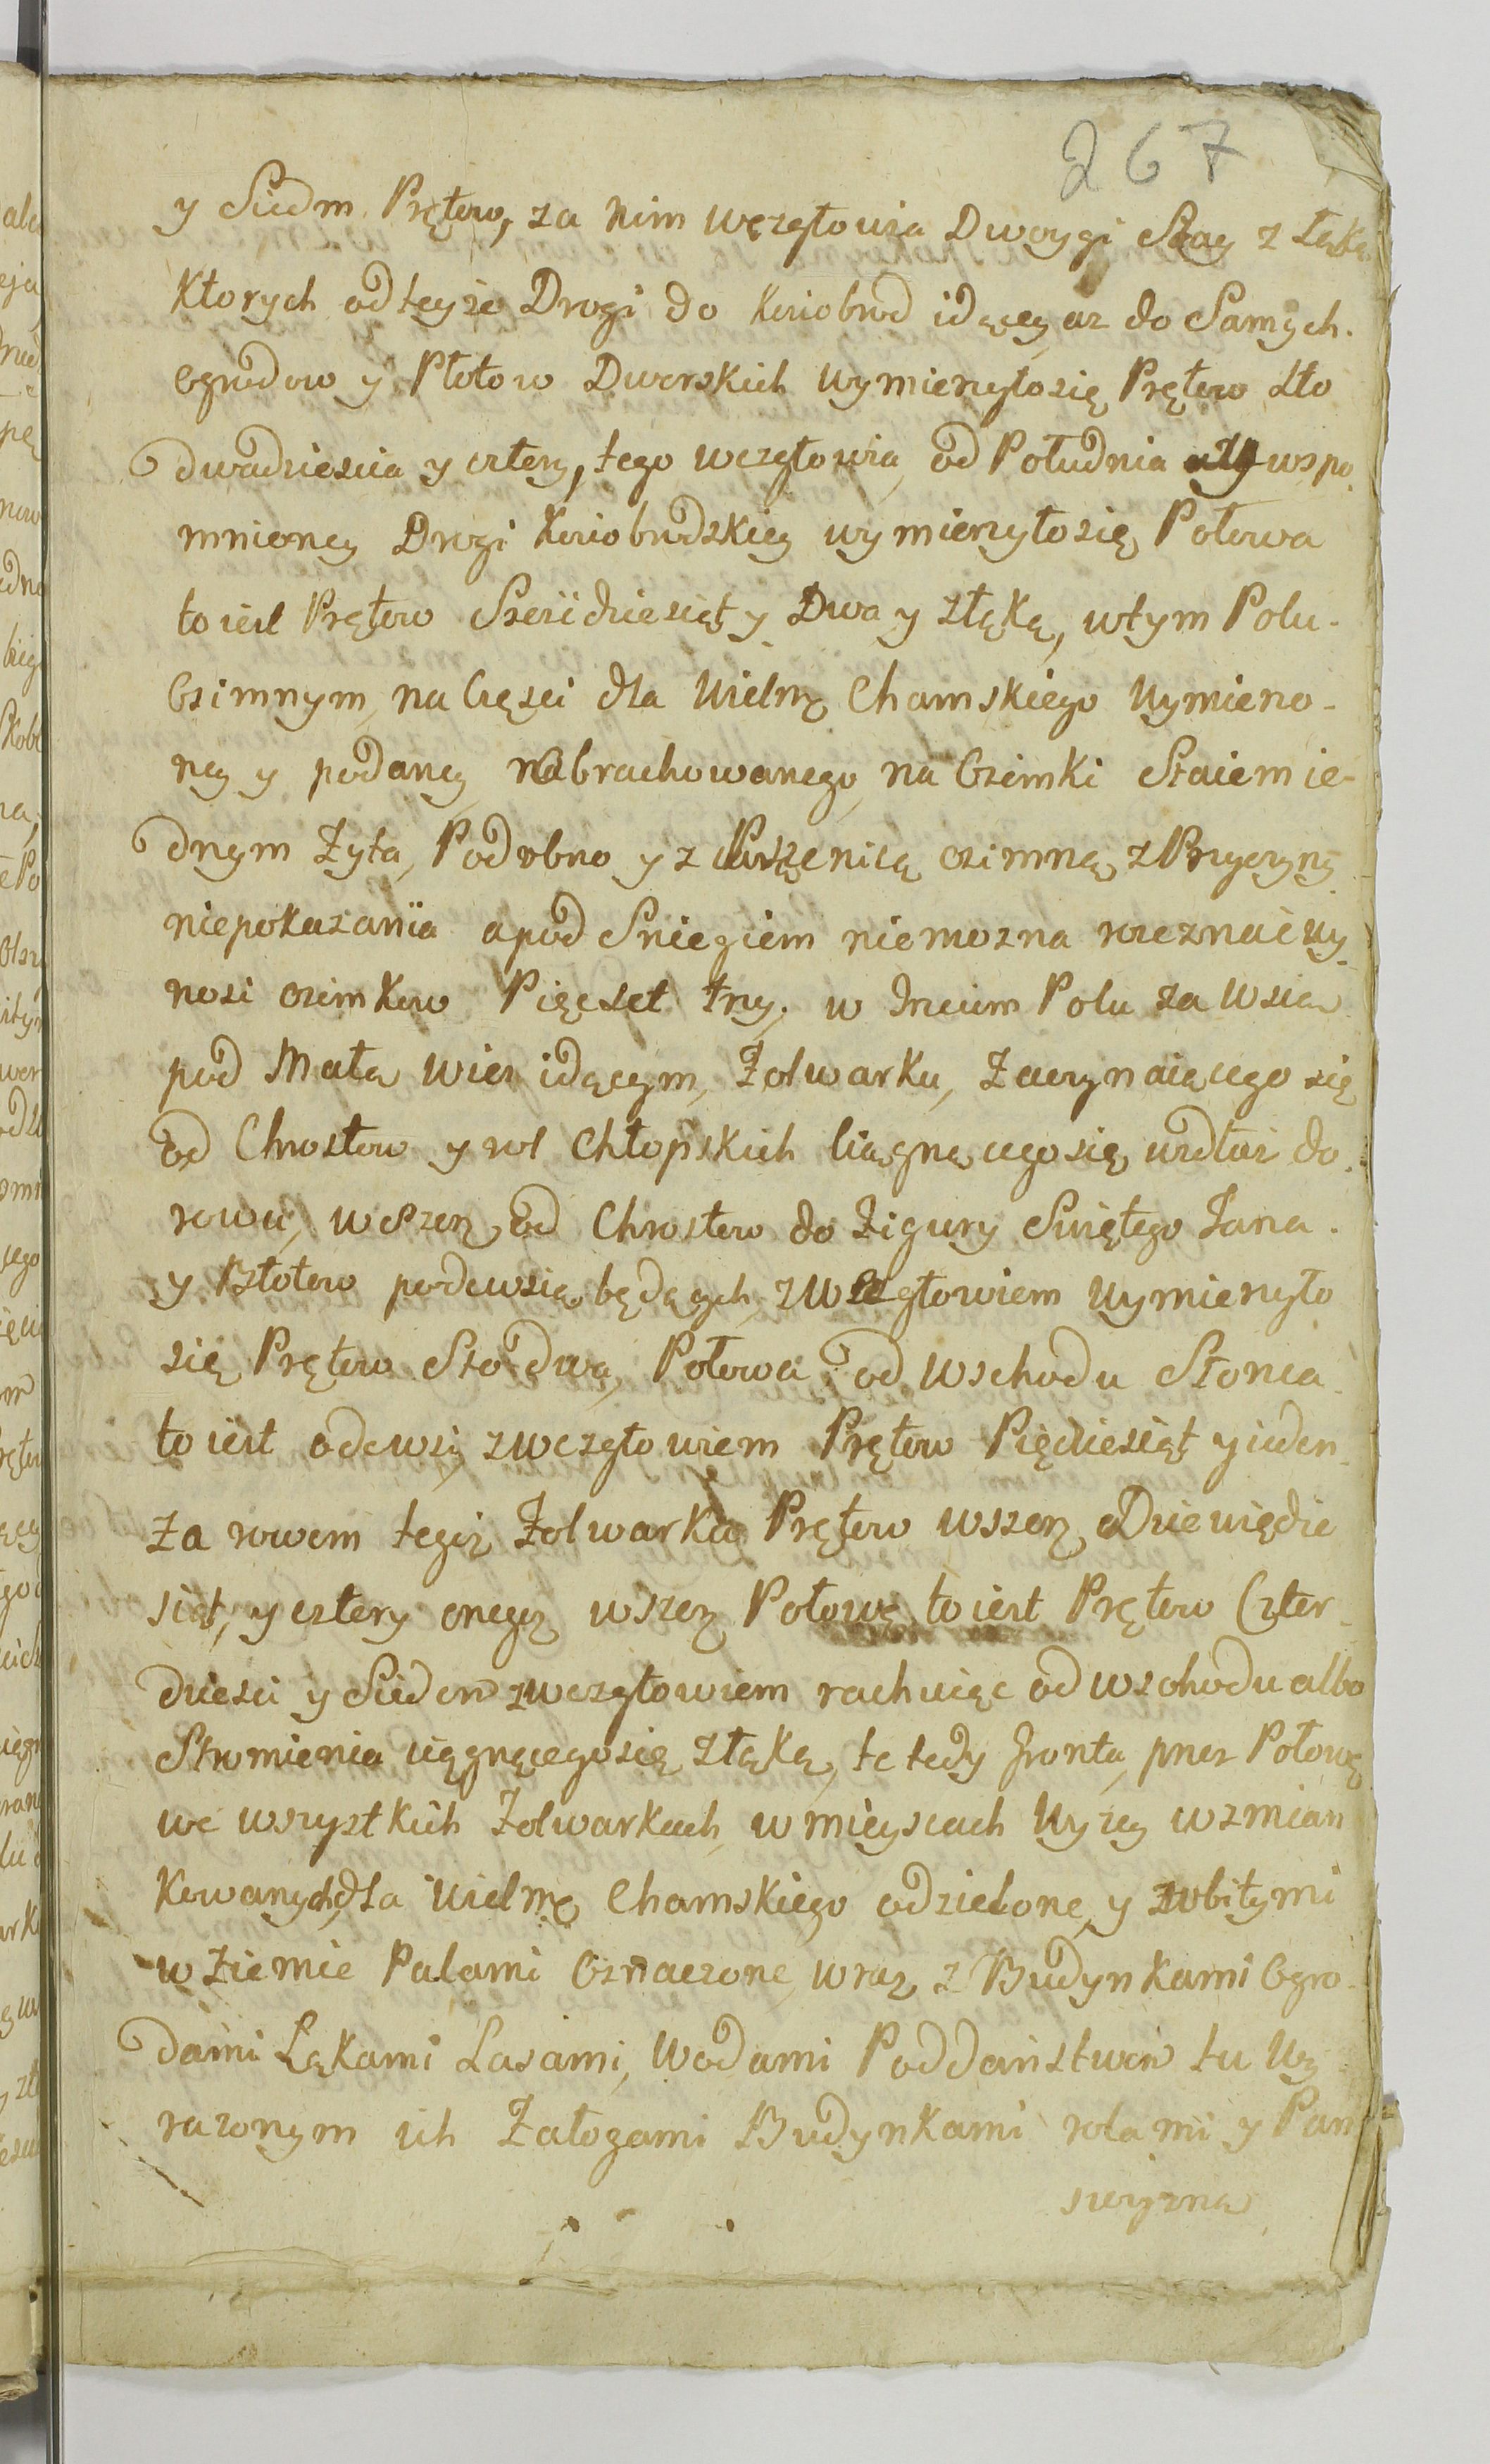 267
y Siedm Prętow, za nim węzgłowia Dwoygi Stay z Łąką
Ktorych od teyze Drogi do Koziobrod idącey az do Samych
ogrodow y Płotow Dworskich wymierzyło się Prętow sto
dwadziescia y cztery, tego wezgłowia od Południa wspo
mnioney Drogi Koziobrodzkiey wymierzyło się Połowa
to iest Prętow Szesčdziesiąt y Dwa y złąką, wtym Polu
Ozimnym na Częsci dla Wielmo Chamskiego Wymierzo-
ney y podaney obrachowanego na Ozimki Staiem ie-
dnym Zyta, Podobno y z Pszenicą ozimną z Przyczyny
niepokazania apod Sniegiem niemozna rozeznać wy
nosi ozimkow Pięcset trzy. w trzecim Polu za Wsią
pod Małą Wies idącym, Folwarku, Zaczynaiącego się
od Chrostow y rol Chłopskich Ciągnącego się wzdłuż do
rowu, wszerz od Chrostow do Figury Swiętego Jana
y Błotow podewsią będących, zwezgłowiem Wymierzyło
się Prętow Sto dwa, Połowa od Wschodu Słonca
to iest odewsi zwezgłowiem Prętow Pięcdiesiąt y ieden
Za rowem tegoż Folwarku Prętow wszerz Dziewięcdzie
siąt, y cztery onegoż wszerz Połowę to iest Prętow Czter
dziesci y Siedem zwezgłowiem rachuiąc od wschodu albo
Strumienia ciągnącego się złąką, te tedy Gronta przez Połowę
we wszystkich Folwarkach, w mieyscach Wyzey wzmian
kowanych, dla Wielmo Chamskiego odzielone, y wbitymi
w Ziemie Palami Oznaczone, wraz z Budynkami Ogro-
dami Łąkami Lasami, Wodami Poddaństwem tu Wy
razonym ich Załogami Budynkami rolami y Pan
szczyzną